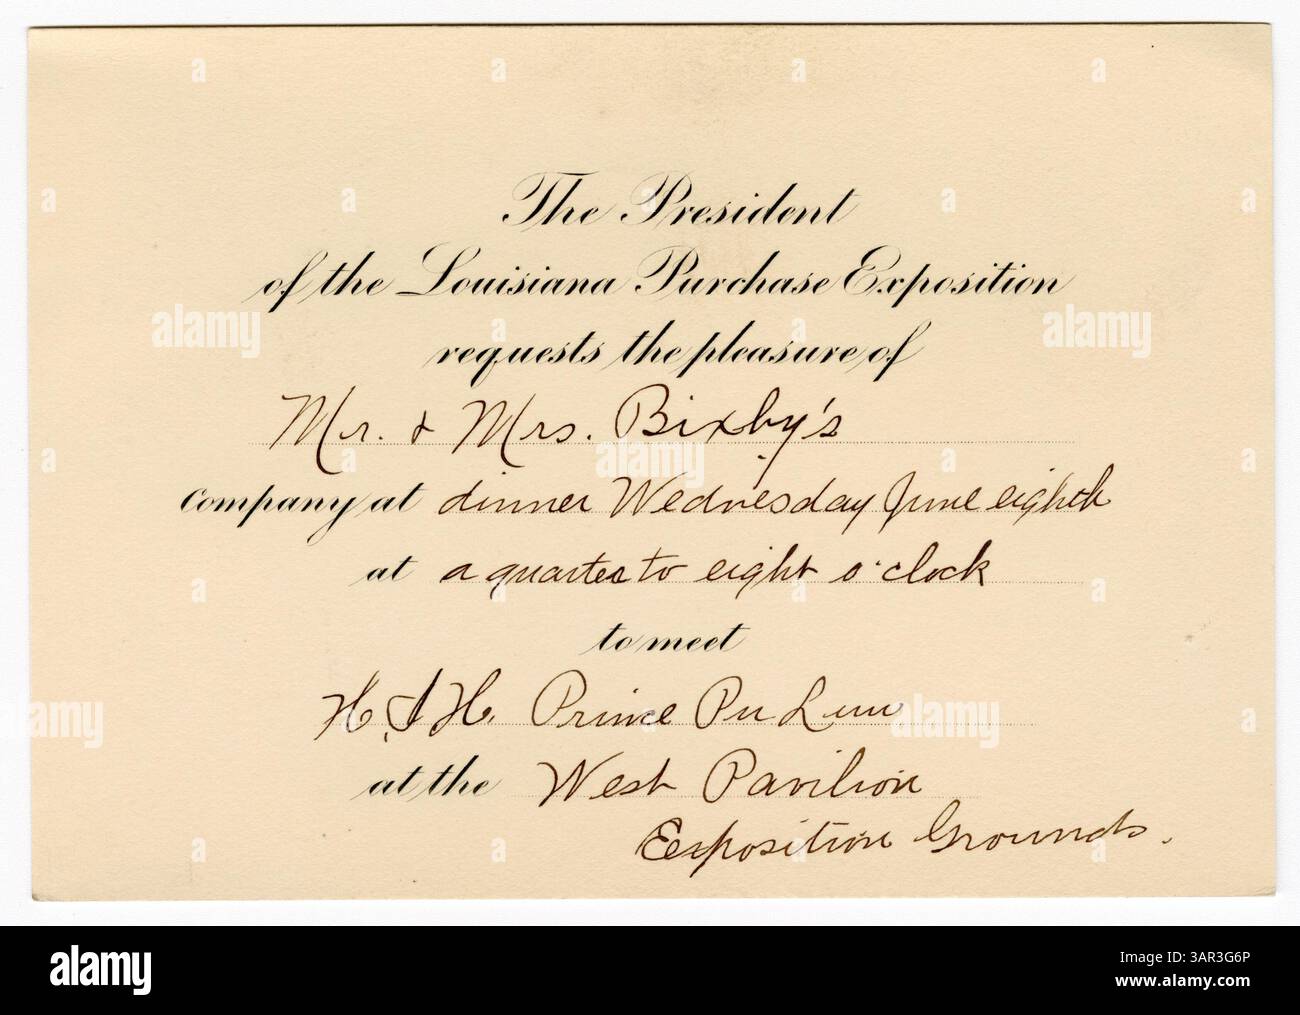 The President
of the Louisiana Purchase Exposition
requests the pleasure of
Mr. & Mrs. Bixby's
company at dinner Wednesday June eighth
at a quarter to eight o'clock
to meet
H. I. H. Prince Pu Lun
at the West Pavilion
Exposition Grounds.
alamy
Image ID: 3AR3G6P
www.alamy.com